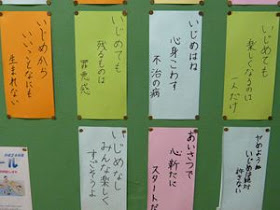 いじめても
楽しくなるのは
一人だけ
いじめはね
心身こわす
不治の病
いじめても
残るものは
罪悪感
いじめから
いいことなにも
生まれない
やめようよ
いじめは絶対
許さない
あいさつで
心新たに
スタートだ
いじめなし
みんな楽しく
すごそうよ